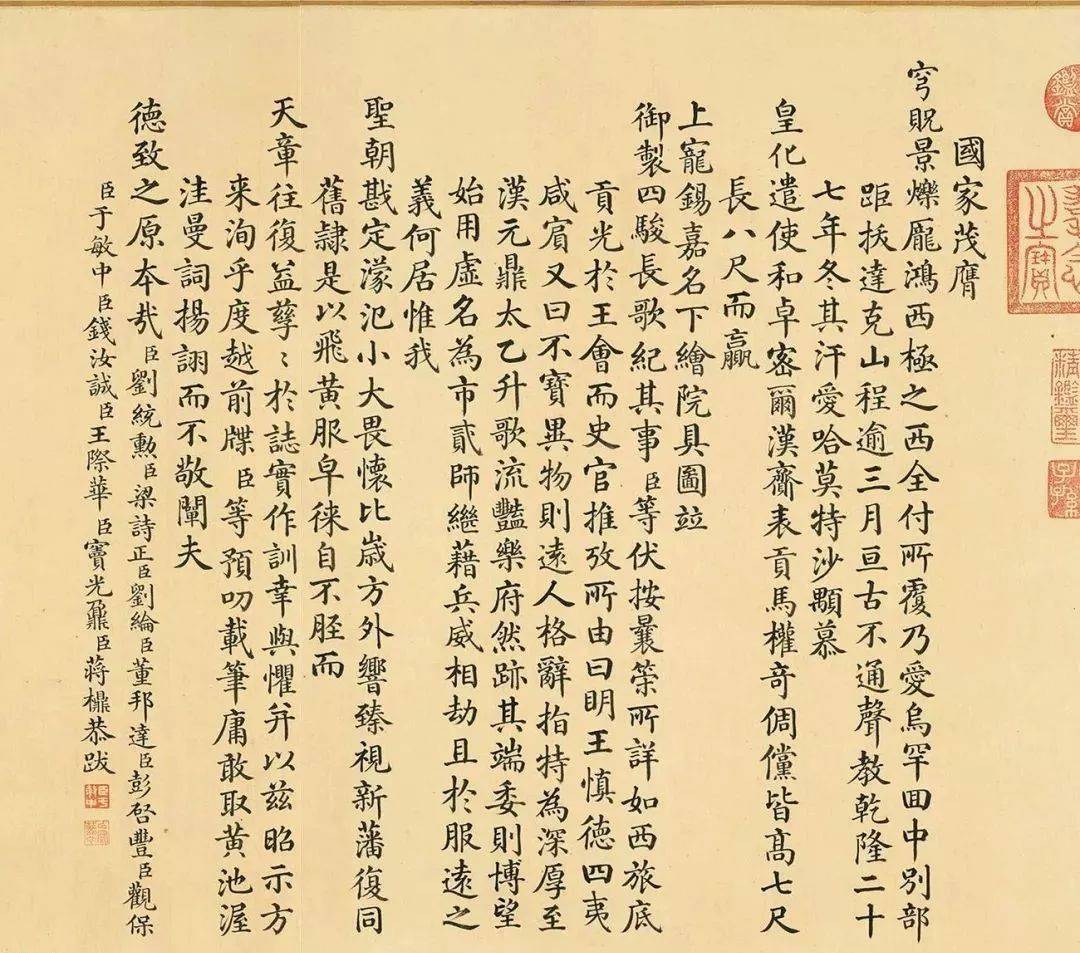 國家茂膺
穹貺景爍龎鴻西極之西全付所覆乃愛烏罕回中別部
距拔達克山程逾三月亘古不通聲教乾隆二十
七年冬其汗愛哈莫特沙顒慕
皇化遣使和卓密爾漢齎表貢馬權奇倜儻皆髙七尺
長八尺而贏
上寵錫嘉名下繪院具圖竝
御製四駿長歌紀其事臣等伏按曩筞所詳如西旅底
貢光於王會而史官推攷所由曰明王慎德四夷
咸賓又曰不寶異物則遠人格辭指特為深厚至
漢元鼎太乙升歌流豔樂府然跡其端委則博望
始用虛名為市貳師繼藉兵威相劫且於服遠之
義何居惟我
聖朝戡定濛汜小大畏懷比歳方外響臻視新藩復同
舊隷是以飛黃服皁徠自不脛而
天章往復益孳〻於誌實作訓幸與懼并以兹昭示方
来洵乎度越前牒臣等預叨載筆庸敢取黃池渥
洼曼詞揚詡而不敬闡夫
德致之原本㢤臣劉統勲臣梁詩正臣劉綸臣董邦達臣彭啓豐臣觀保
臣于敏中臣錢汝誠臣王際華臣竇光鼐臣蔣檙恭跋